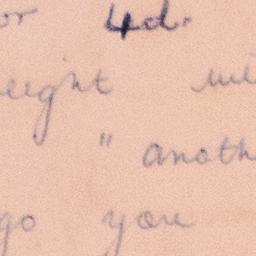 or 4d.
eight
" anoth
go you